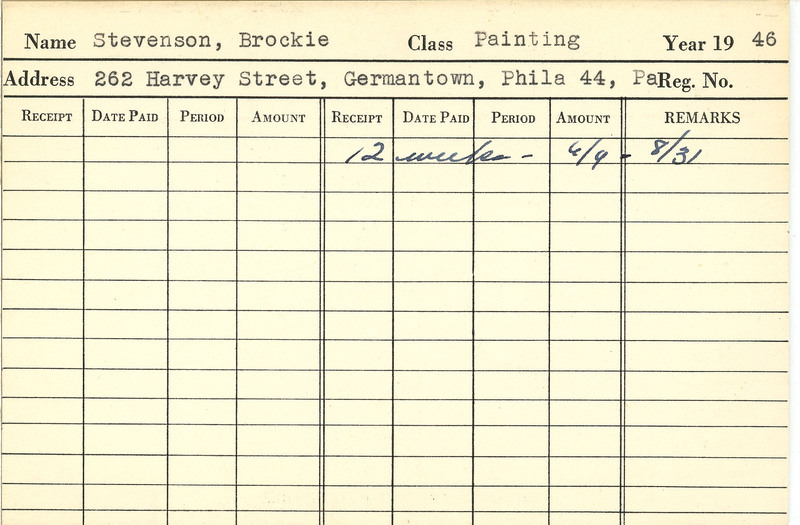 Name Stevenson, Brockie Class Painting Year 19 46
Address 262 Harvey Street, Germantown, Phila 44, Pa Reg. No.
RECEIPT DATE PAID PERIOD AMOUNT RECEIPT DATE PAID PERIOD AMOUNT REMARKS
12 weeks - 6/9 - 8/31